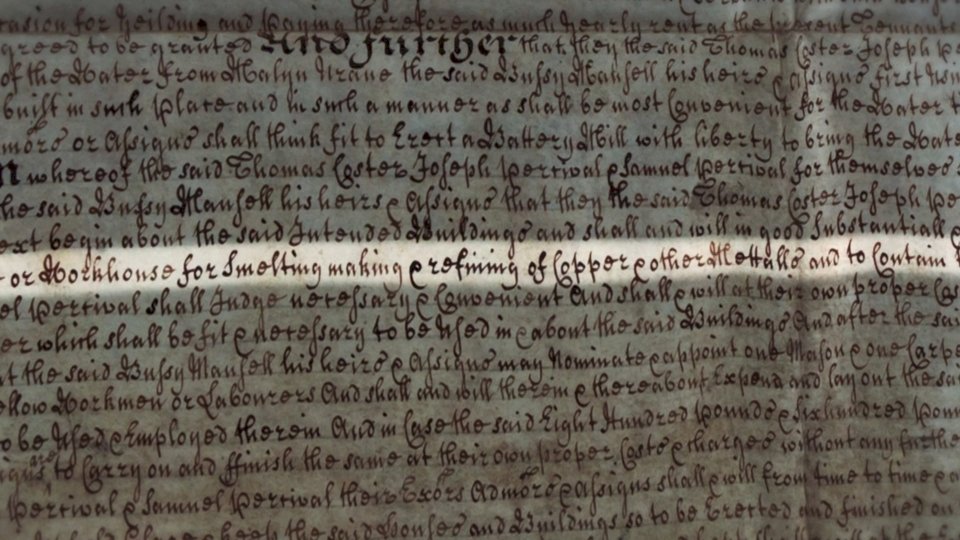 for Yeilding and Paying therefore as much yearly rent as the present Tennant
greed to be granted And further that they the said Thomas Coster Joseph Pe
of the Water from Malyn the said Bussy Mansell his heirs & Assigns first
built in such place and in such a manner as shall be most Convenient for the Water t
more or Assigns shall think fit to Erect a Battery Mill with liberty to bring the Wate
n whereof the said Thomas Coster Joseph Percival & Samuel Percival for themselves
he said Bussy Mansell his heirs & Assigns that they the said Thomas Coster Joseph Pe
ext begin about the said Intended Buildings and shall and will in good Substantiall
or Workhouse for Smelting making & refining of Copper & other Mettalls and to Contain
el Percival shall Judge necessary & Convenient And shall & will at their own proper Cos
er which shall be fit & necessary to be Used in & about the said Buildings And after the sai
at the said Bussy Mansell his heirs & Assigns may Nominate & appoint one Mason & one Carpe
ellow Workmen or Labourers And shall and will therein & thereabout Expend and lay out the sai
o be Used & Employed therein And in Case the said Eight Hundred Pounds & six hundred Poun
to Carry on and ffinish the same at their own proper Costs & charges without any furthe
Percival & Samuel Percival their Exors Admors & Assigns shall & will from time to time
the said Houses and Buildings so to be Erected and finished